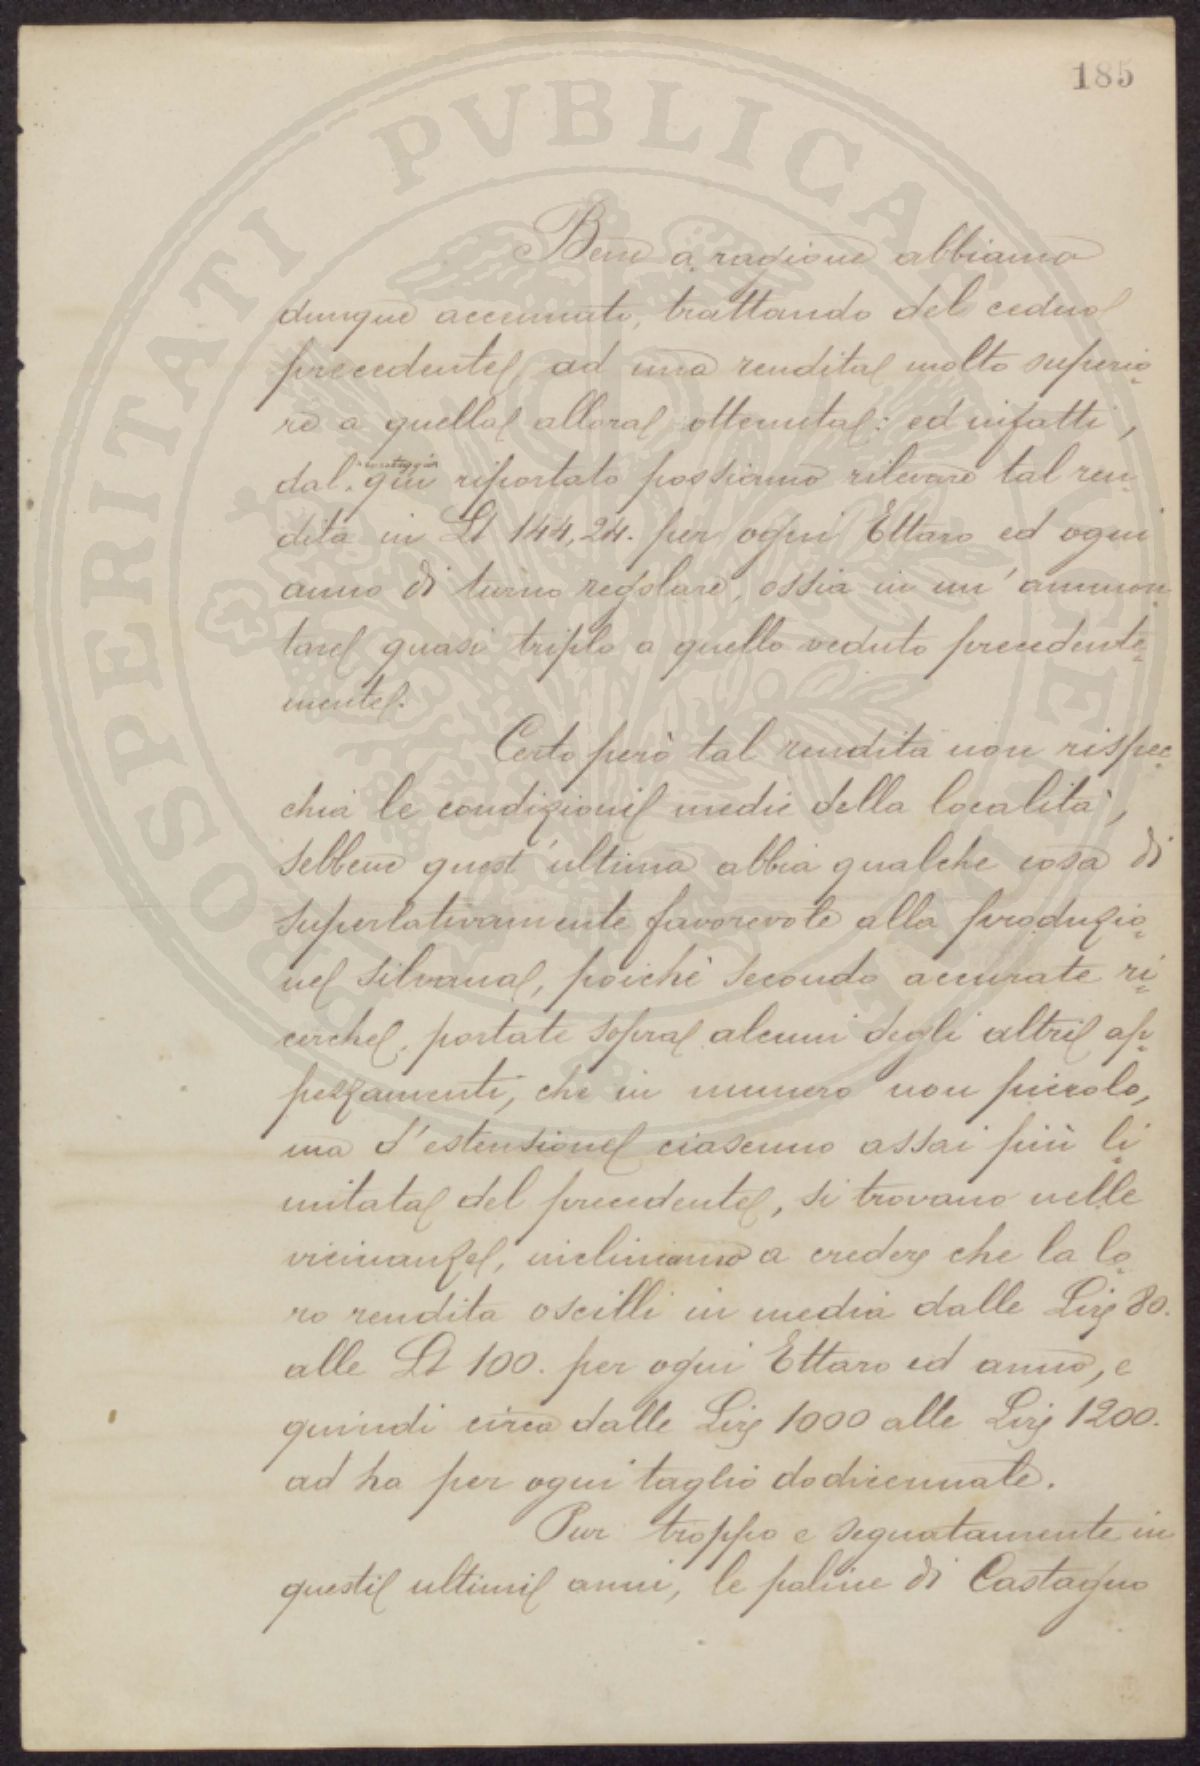 185
PROSPERITATI PVBLICAE AVGENDAE
Bene a ragione abbiamo
dunque accennato, trattando del ceduo
precedente, ad una rendita molto superio=
re a quella allora ottenuta: ed infatti,
dal conteggio qui riportato possiamo rilevare tal ren=
dita in Lt 144,24. per ogni Ettaro ed ogni
anno di turno regolare, ossia in un' ammon=
tare quasi triplo a quello veduto precedente=
mente.
Certo però tal rendita non rispec=
chia le condizioni medie della località,
sebbene quest'ultima abbia qualche cosa di
superlativamente favorevole alla produzio=
ne silvana, poichè secondo accurate ri=
cerche, portate sopra alcuni degli altri ap=
pezzamenti, che in numero non piccolo,
ma d'estensione ciascuno assai più li=
mitata del precedente, si trovano nelle
vicinanze, incliniamo a credere che la lo=
ro rendita oscilli in media dalle Lire 80.
alle Lt 100. per ogni Ettaro ed anno, e
quindi circa dalle Lire 1000 alle Lire 1200.
ad ha per ogni taglio dodicennale.
Pur troppo e segnatamente in
questi ultimi anni, le paline di Castagno